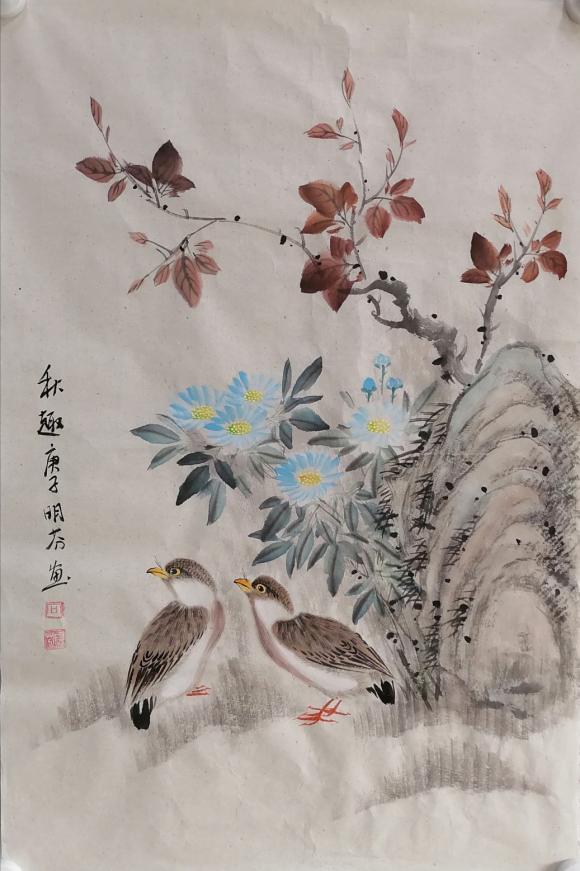 秋趣庚子明芬画